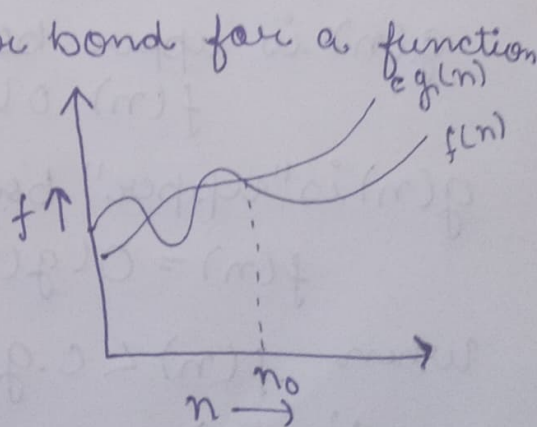 bond for a function
c g(n)
f(n)
f ↑
n₀
n →